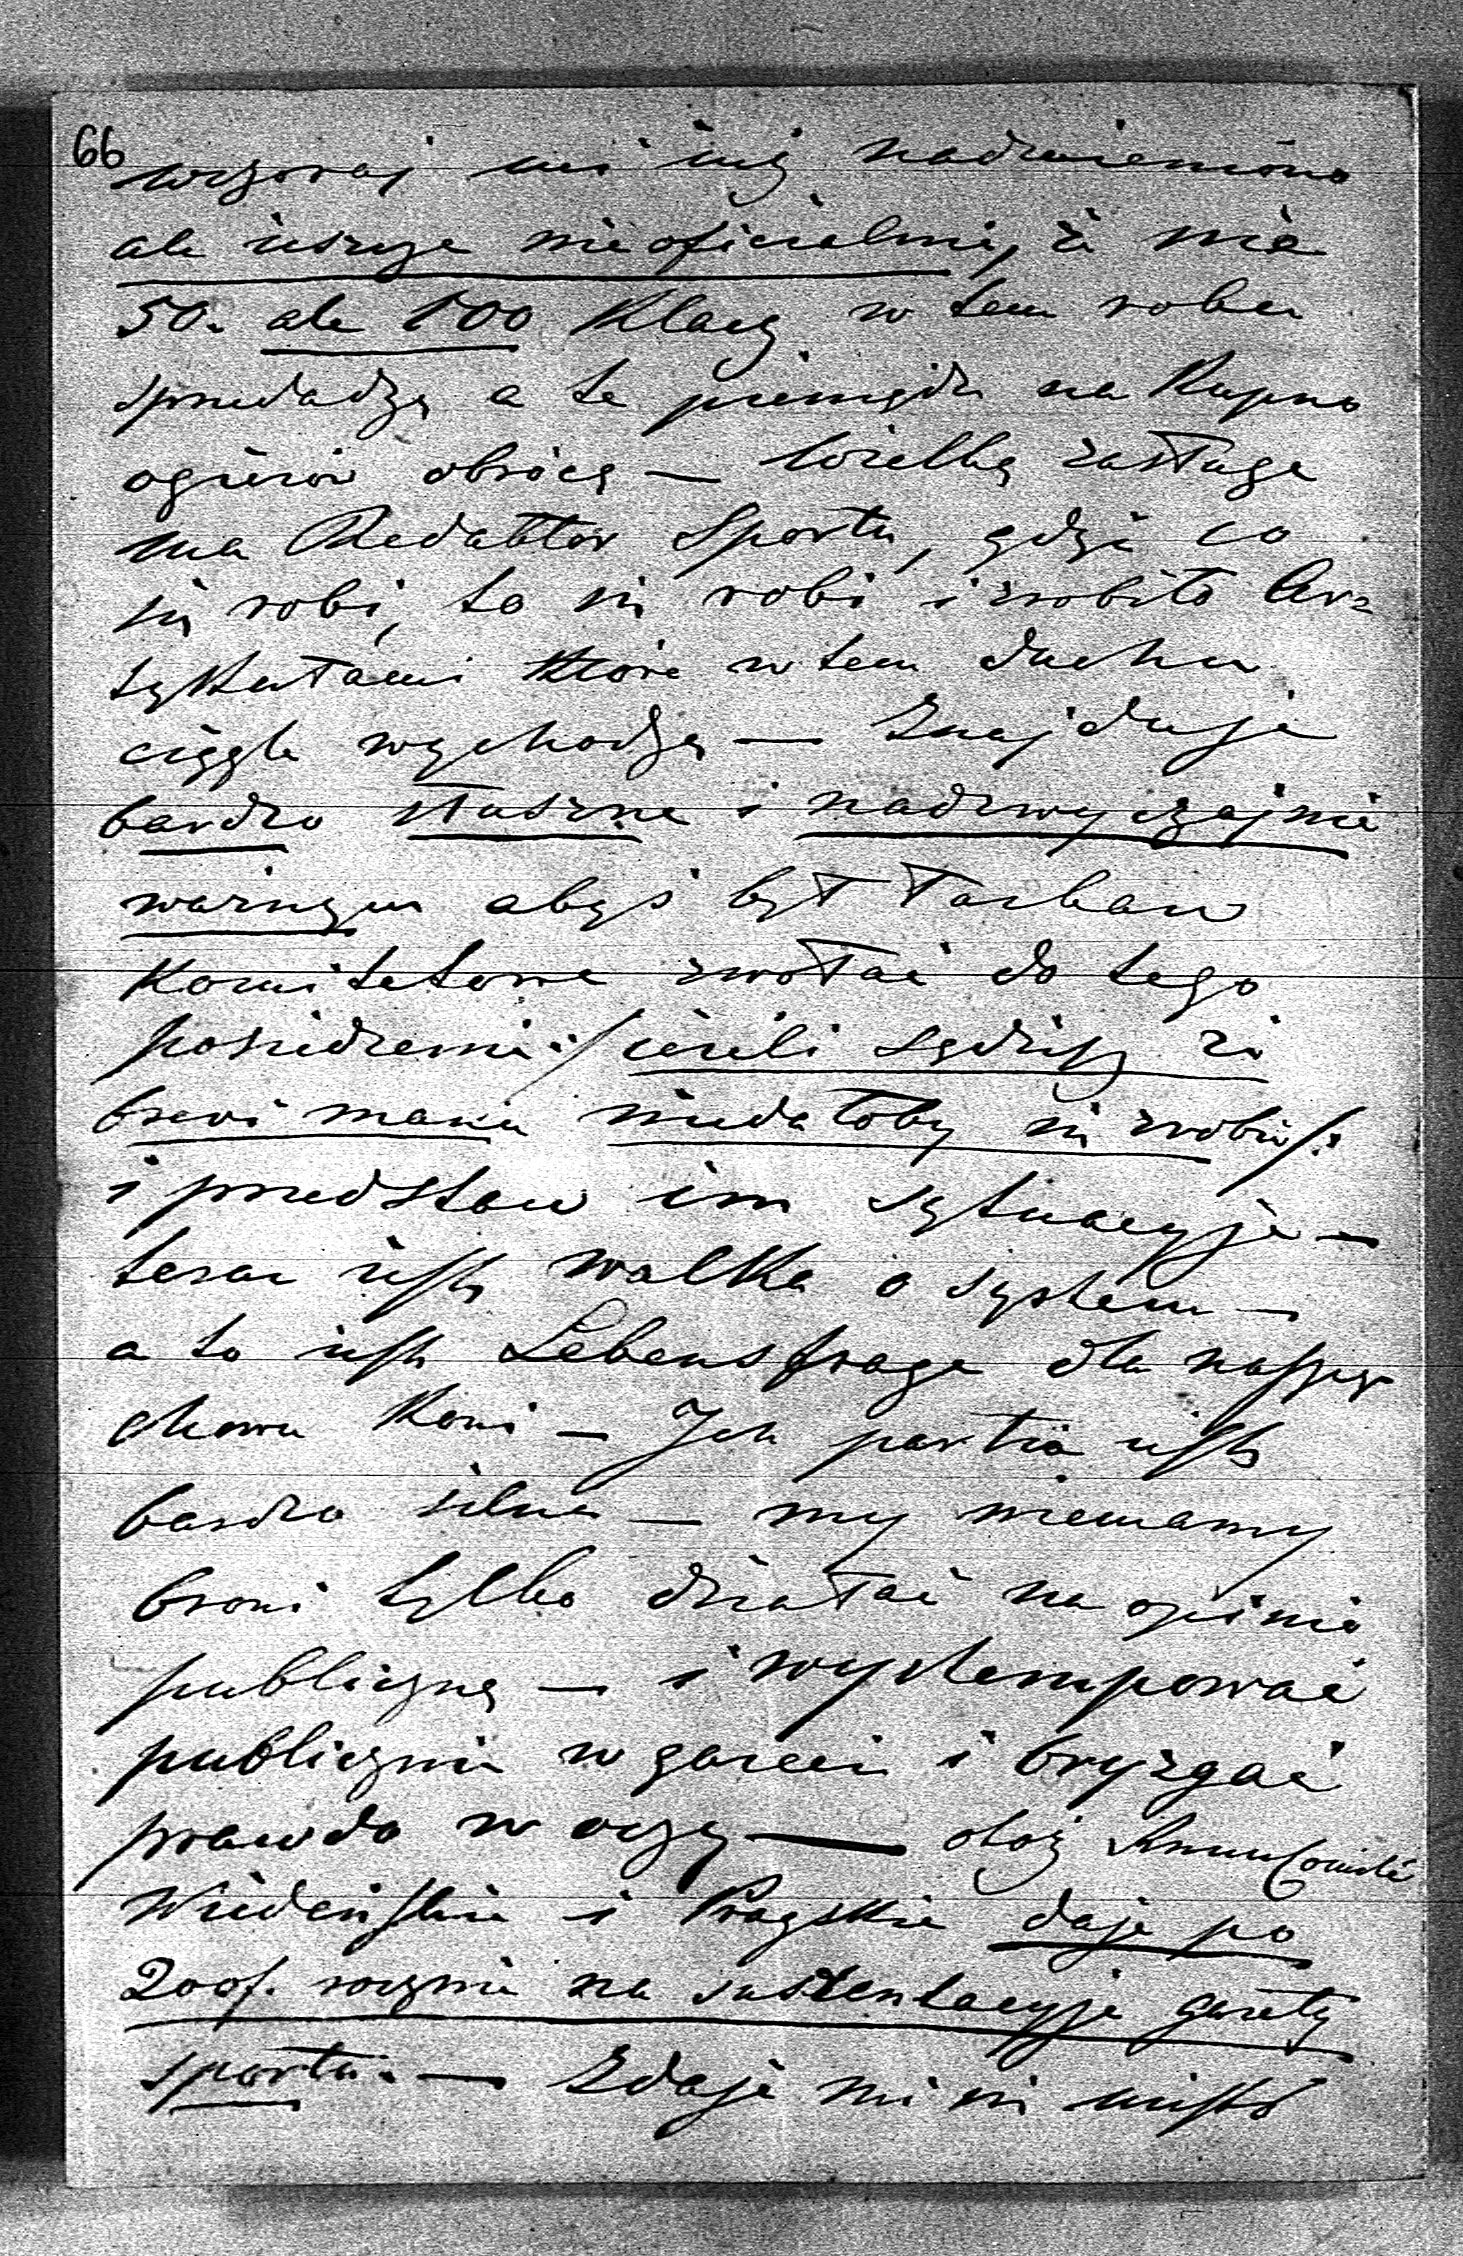 66
wczoraj mi już nadmieniono
ale jeszcze nieoficialnie, że nie
50. ale 100 Klaczy w tem roku
sprzedadzą a te pieniądze na Kupno
ogierów obrócą — wielką zasługe
ma Redaktor Sportu, gdyż co
się robi, to się robi i zrobiło Ar=
tykułami które w tem duchu
ciągle wychodzą — Znajduje
bardzo słuszne i nadzwyczajnie
ważnym abyś był łaskaw
Komitetowe zwołać do tego
posiedzenie :/ jeżeli sądzisz że
brevi manu nieudałoby się zrobić /:
i przedstaw im sytuacyje —
teraz jest walka o system —
a to jest Lebensfrage dla naszego
chowu Koni — Ich partia jest
bardzo silna — my niemamy
broni tylko działać na opinie
publiczną — i wystempować
publicznie w gazecie i bryzgać
prawdo w oczy — otoż Comité
Wiedeńskie i Pragskie daje po
200f. rocznie na sustentacyje gazety
sportu. — Zdaje mi się